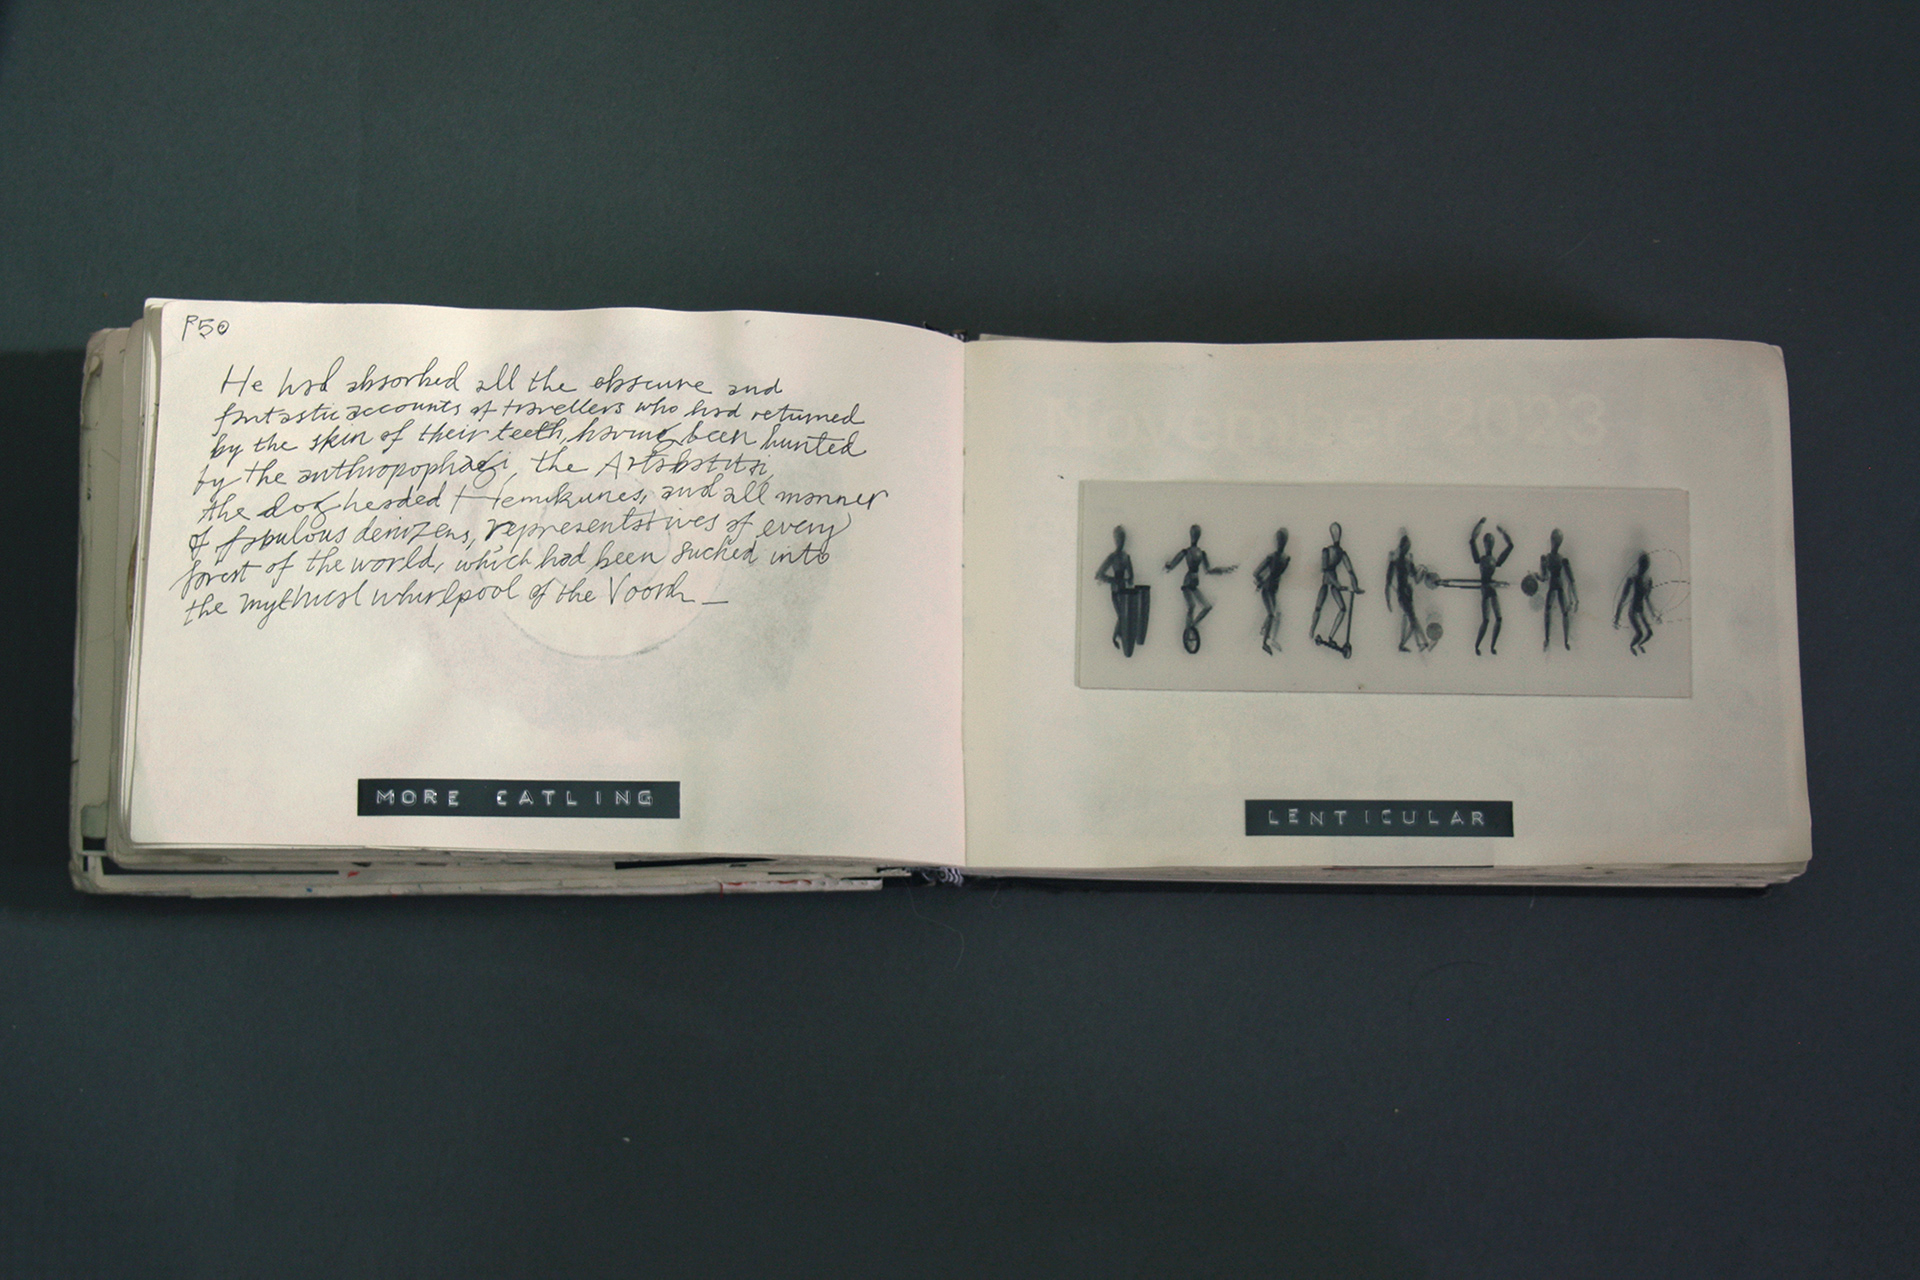 P50
He had absorbed all the obscure and
fantastic accounts of travellers who had returned
by the skin of their teeth, having been hunted
by the anthropophagi, the Artabatitai,
the dog headed Hemikunes, and all manner
of fabulous denizens, representatives of every
forest of the world, which had been sucked into
the mythical whirlpool of the Voorrh —
MORE CATLING
LENTICULAR